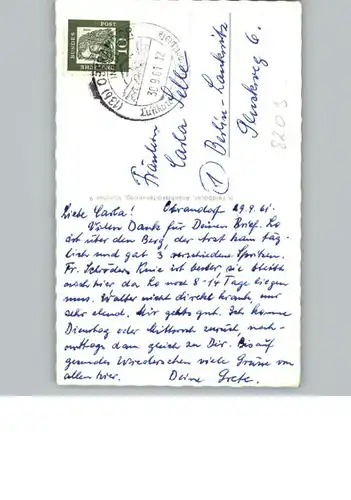 DEUTSCHE
BUNDES
POST
10
30.9.61.12
Fräulein
Carla Selle
(1) Berlin-Lankwitz
6.
8203
Liebe Carla! 29.9.61.
Vielen Dank für Deinen Brief. Lo
ist über den Berg, der Arzt kam täg-
lich und gab 3 verschiedene Spritzen.
Fr. Schröders Knie ist besser, sie bleibt
auch hier da Lo noch 8-14 Tage liegen
muss. Walter nicht direkt krank, nur
sehr elend. Mir gehts gut. Ich komme
Dienstag oder Mittwoch zurück, nach-
mittags dann gleich zu Dir. Bis auf
gesundes Wiedersehen viele Grüsse von
allen hier. Deine Grete.